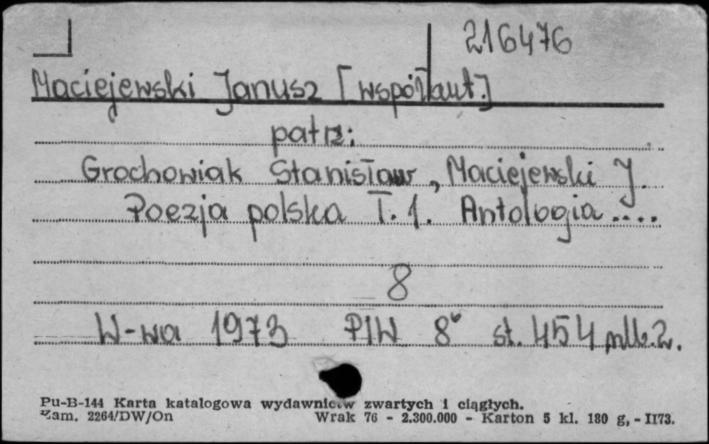 216476
Maciejewski Janusz [współaut.]
patrz:
Grochowiak Stanisław, Maciejewski J.
Poezja polska T. 1. Antologia ....
8
W-wa 1973 PIW 8° st. 454 nlb. 2.
Pu-B-144 Karta katalogowa wydawnictw zwartych i ciągłych.
Zam. 2264/DW/On Wrak 76 - 2.300.000 - Karton 5 kl. 180 g, - II73.